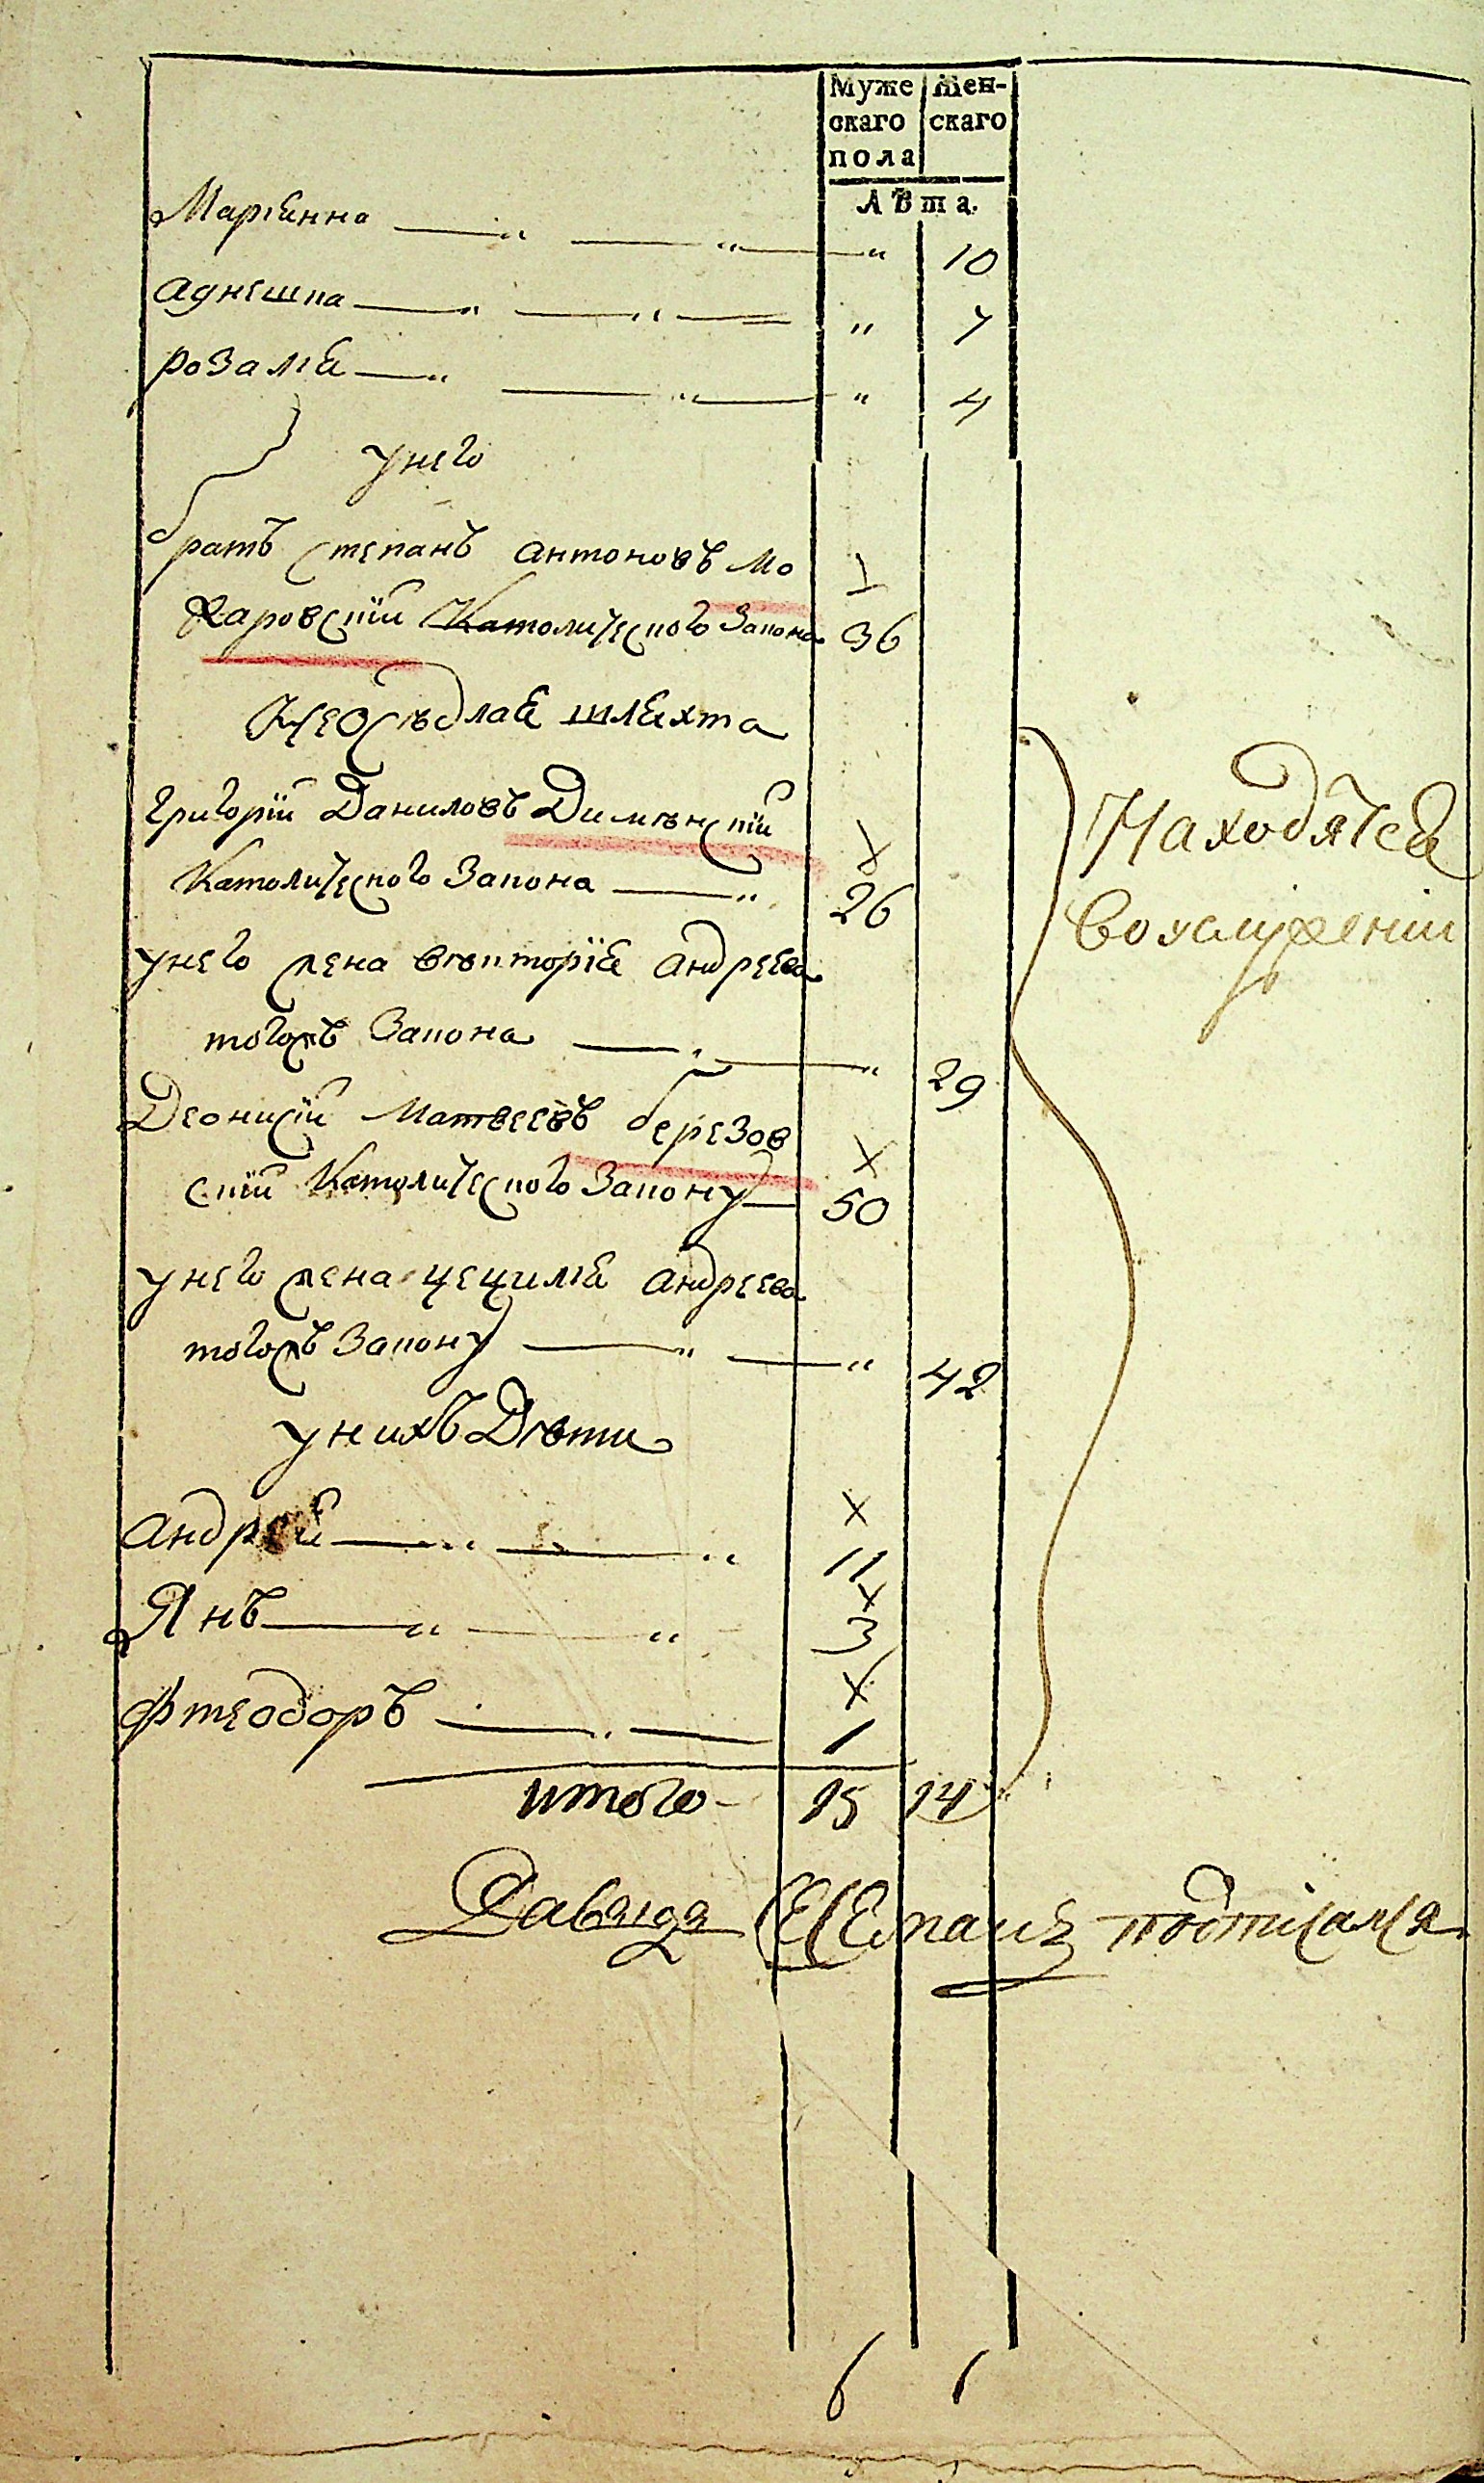 Муже Жен-
скаго скаго
пола
Лѣта.
Маріянна „ „ „ 10
агнешка „ „ „ 7
розалія „ „ „ 4
унего
братъ степанъ антоновъ мо 1
жаровскій Католического закона 36
Неосѣдлая шляхта
григорій Даниловъ Димѣнскій х
Католического Закона „ 26
унего жена вѣкторія андреева
тогожъ Закона „ „ 29
Деонисій Матвеевъ березов х
скій Католического Закону 50
унего жена цецилія андреева
тогожъ Закону „ „ 42
унихъ Дѣти
андрей „ „ х 11
Янъ „ „ х 3
фтеодоръ х 1
итого 15 14
Находятся
подписался
6 1